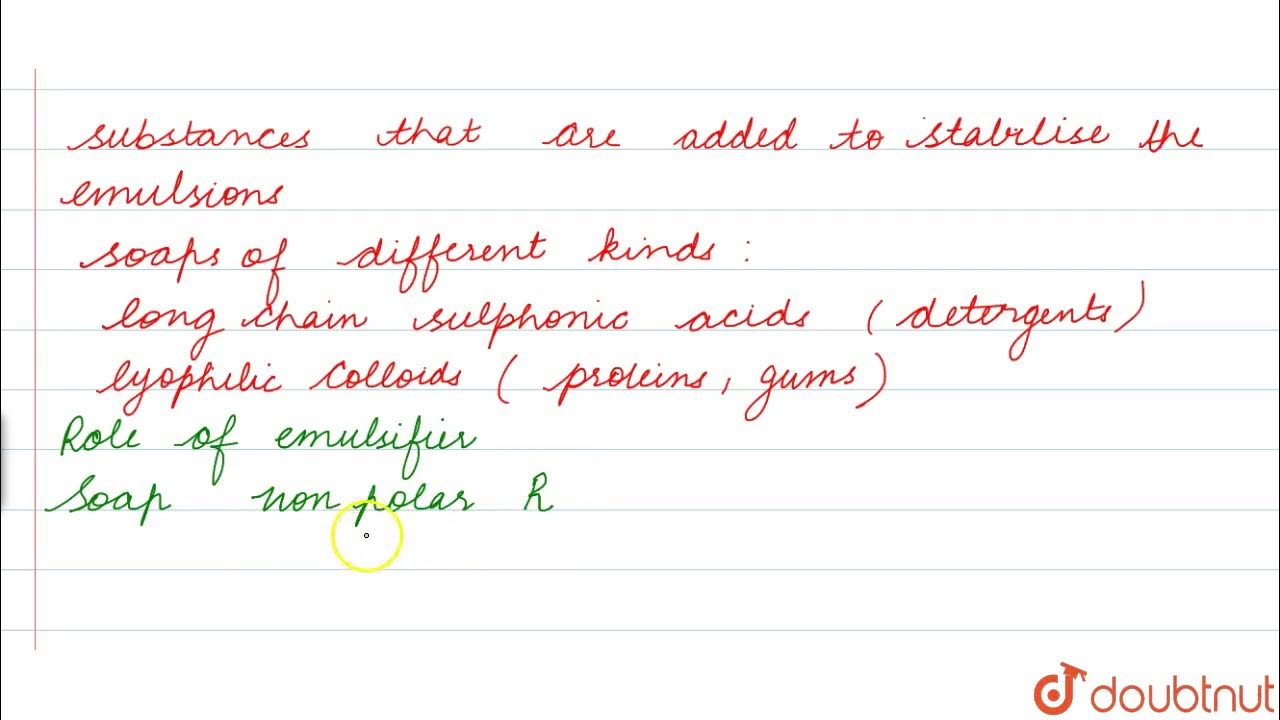 substances that are added to stabilise the
emulsions
soaps of different kinds :
long chain sulphonic acids ( detergents )
lyophilic colloids ( proteins , gums )
Role of emulsifier
Soap non polar R
doubtnut